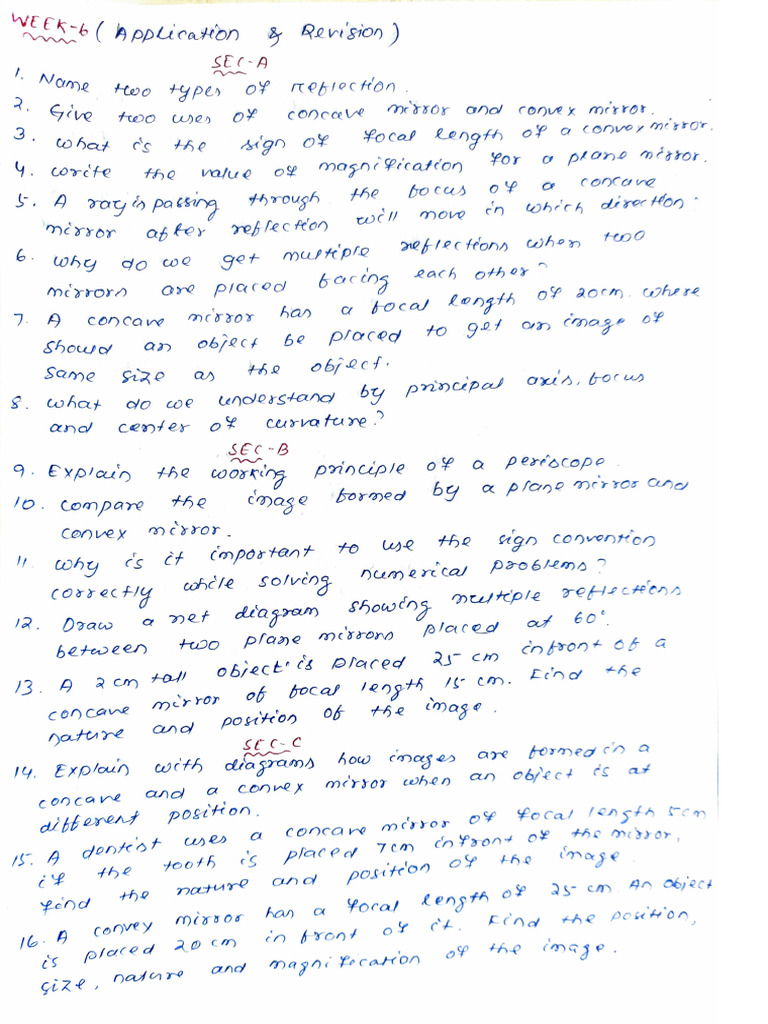 WEEK-6 ( Application & Revision )
SEC-A
1. Name two types of reflection.
2. Give two uses of concave mirror and convex mirror.
3. what is the sign of focal length of a convex mirror.
4. write the value of magnification for a plane mirror.
5. A ray is passing through the focus of a concave
mirror after reflection will move in which direction.
6. why do we get multiple reflections when two
mirrors are placed facing each other?
7. A concave mirror has a focal length of 20cm. where
should an object be placed to get an image of
same size as the object.
8. what do we understand by principal axis, focus
and center of curvature?
SEC-B
9. Explain the working principle of a periscope.
10. compare the image formed by a plane mirror and
convex mirror.
11. why is it important to use the sign convention
correctly while solving numerical problems?
12. Draw a net diagram showing multiple reflections
between two plane mirrors placed at 60°.
13. A 2cm tall object is placed 25 cm infront of a
concave mirror of focal length 15 cm. Find the
nature and position of the image.
SEC-C
14. Explain with diagrams how images are formed in a
concave and a convex mirror when an object is at
different position.
15. A dentist uses a concave mirror of focal length 5cm
if the tooth is placed 7cm infront of the mirror,
find the nature and position of the image.
16. A convey mirror has a focal length of 25 cm. An object
is placed 20 cm in front of it. Find the position,
size, nature and magnification of the image.